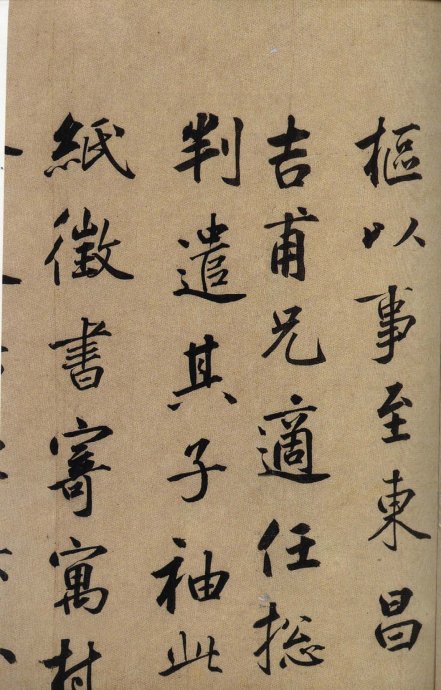 樞以事至東昌
吉甫兄適任総
判遣其子袖此
紙徵書寄寓村